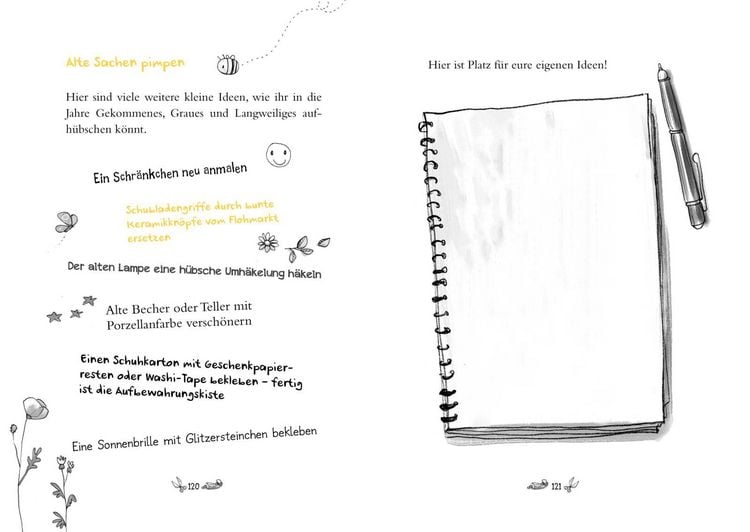 Alte Sachen pimpen
Hier sind viele weitere kleine Ideen, wie ihr in die
Jahre Gekommenes, Graues und Langweiliges auf-
hübschen könnt.
Ein Schränkchen neu anmalen
Schubladengriffe durch bunte
Keramikknöpfe vom Flohmarkt
ersetzen
Der alten Lampe eine hübsche Umhäkelung häkeln
Alte Becher oder Teller mit
Porzellanfarbe verschönern
Einen Schuhkarton mit Geschenkpapier-
resten oder Washi-Tape bekleben – fertig
ist die Aufbewahrungskiste
Eine Sonnenbrille mit Glitzersteinchen bekleben
120
Hier ist Platz für eure eigenen Ideen!
121